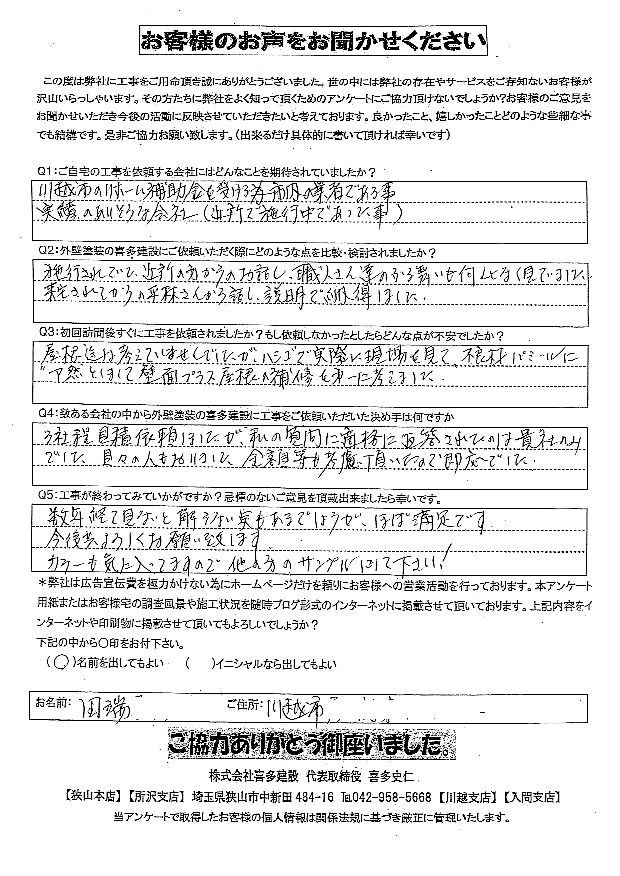 お客様のお声をお聞かせください
この度は弊社に工事をご用命頂き誠にありがとうございました。世の中には弊社の存在やサービスをご存知ないお客様が
沢山いらっしゃいます。その方たちに弊社をよく知って頂くためのアンケートにご協力頂けないでしょうか?お客様のご意見を
お聞かせいただき今後の活動に反映させていただきたいと考えております。良かったこと、嬉しかったことどのような些細な事
でも結構です。是非ご協力お願い致します。(出来るだけ具体的に書いて頂ければ幸いです)
Q1:ご自宅の工事を依頼する会社にはどんなことを期待されていましたか?
川越市のリホーム補助金を受ける為市内の業者である事
実績のありそうな会社(近所で施行中であった事)
Q2:外壁塗装の喜多建設にご依頼いただく際にどのような点を比較・検討されましたか?
施行されていて、近所の方からのお話し、職人さん達のふる舞いを何となく見ていました
来宅されてからの平林さんから話し、説明で納得しました。
Q3:初回訪問後すぐに工事を依頼されましたか?もし依頼しなかったとしたらどんな点が不安でしたか?
屋根迄は考えていませんでしたが、ハシゴで実際に現場を見て、不良材パミールに
ア然としまして壁面プラス屋根の補修を第一に考てました
Q4:数ある会社の中から外壁塗装の喜多建設に工事をご依頼いただいた決め手は何ですか
3社程見積依頼しましたが、私の質問に適格に返答されたのは貴社のみ
でした 金額等も考慮頂いたので即応でした。
Q5:工事が終わってみていかがですか?忌憚のないご意見を頂戴出来ましたら幸いです。
数年経て見ないと解らない実もあるでしょうが、ほぼ満足です
今後共よろしくお願い致します
カラーも気に入ってますので他の方のサンプルにして下さい!
*弊社は広告宣伝費を極力かけない為にホームページだけを頼りにお客様への営業活動を行っております。本アンケート
用紙またはお客様宅の調査風景や施工状況を随時ブログ形式のインターネットに掲載させて頂いております。上記内容をイ
ンターネットや印刷物に掲載させて頂いてもよろしいでしょうか?
下記の中から○印をお付下さい。
(○)名前を出してもよい ( )イニシャルなら出してもよい
お名前: 田端 ご住所: 川越市
ご協力ありがとう御座いました。
株式会社喜多建設 代表取締役 喜多史仁
【狭山本店】【所沢支店】埼玉県狭山市中新田484-16 ℡042-958-5668【川越支店】【入間支店】
当アンケートで取得したお客様の個人情報は関係法規に基づき厳正に管理いたします。